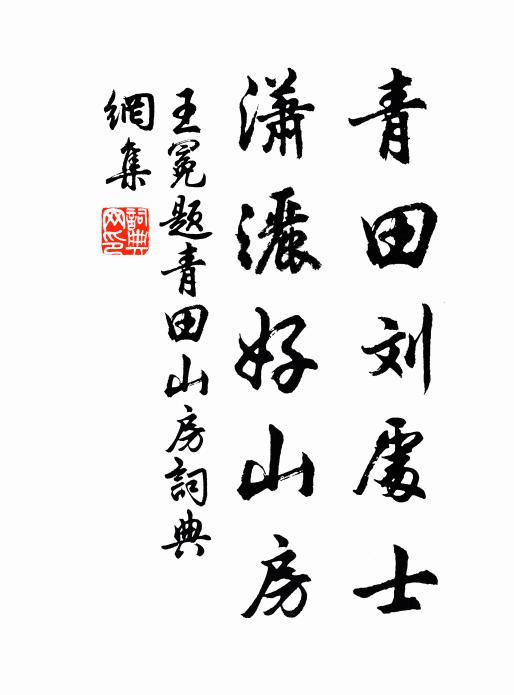 青田刘處士
瀟灑好山房
王冕題青田山房詞典
網集
詞典
网印